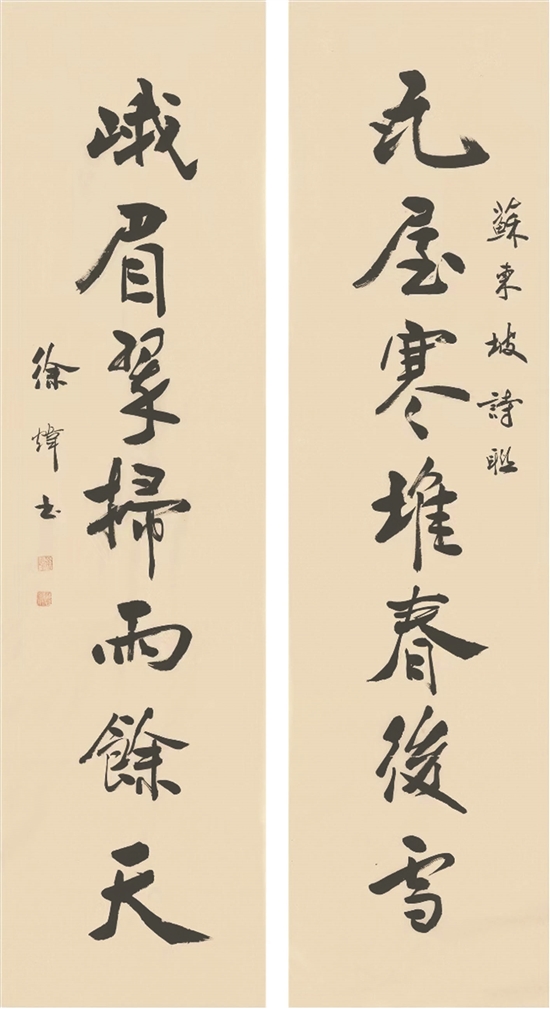 蘇東坡詩聯
瓦屋寒堆春後雪
峨眉翠掃雨餘天
徐煒書